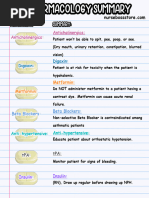 PHARMACOLOGY SUMMARY
nursebossstore.com
SUMMARY:
Anticholinergics:
Anticholinergics:
Patient won't be able to spit, pee, poop, or see.
(Dry mouth, urinary retention, constipation, blurred
vision)
Digoxin
Digoxin:
Patient is at risk for toxicity when the patient is
hypokalemic.
Metformin
Metformin:
Do NOT administer to the patient before a contrast
media dye. Metformin can cause acute renal
failure.
Beta Blockers
Beta Blockers:
Non-selective Beta Blocker is contraindicated among
asthmatic patients
Anti-hypertensive:
Anti-hypertensive:
Educate patient about orthostatic hypotension.
tPA
tPA:
Monitor patient for signs of bleeding.
Insulin
Insulin:
(RN). Draw up regular before drawing up NPH.